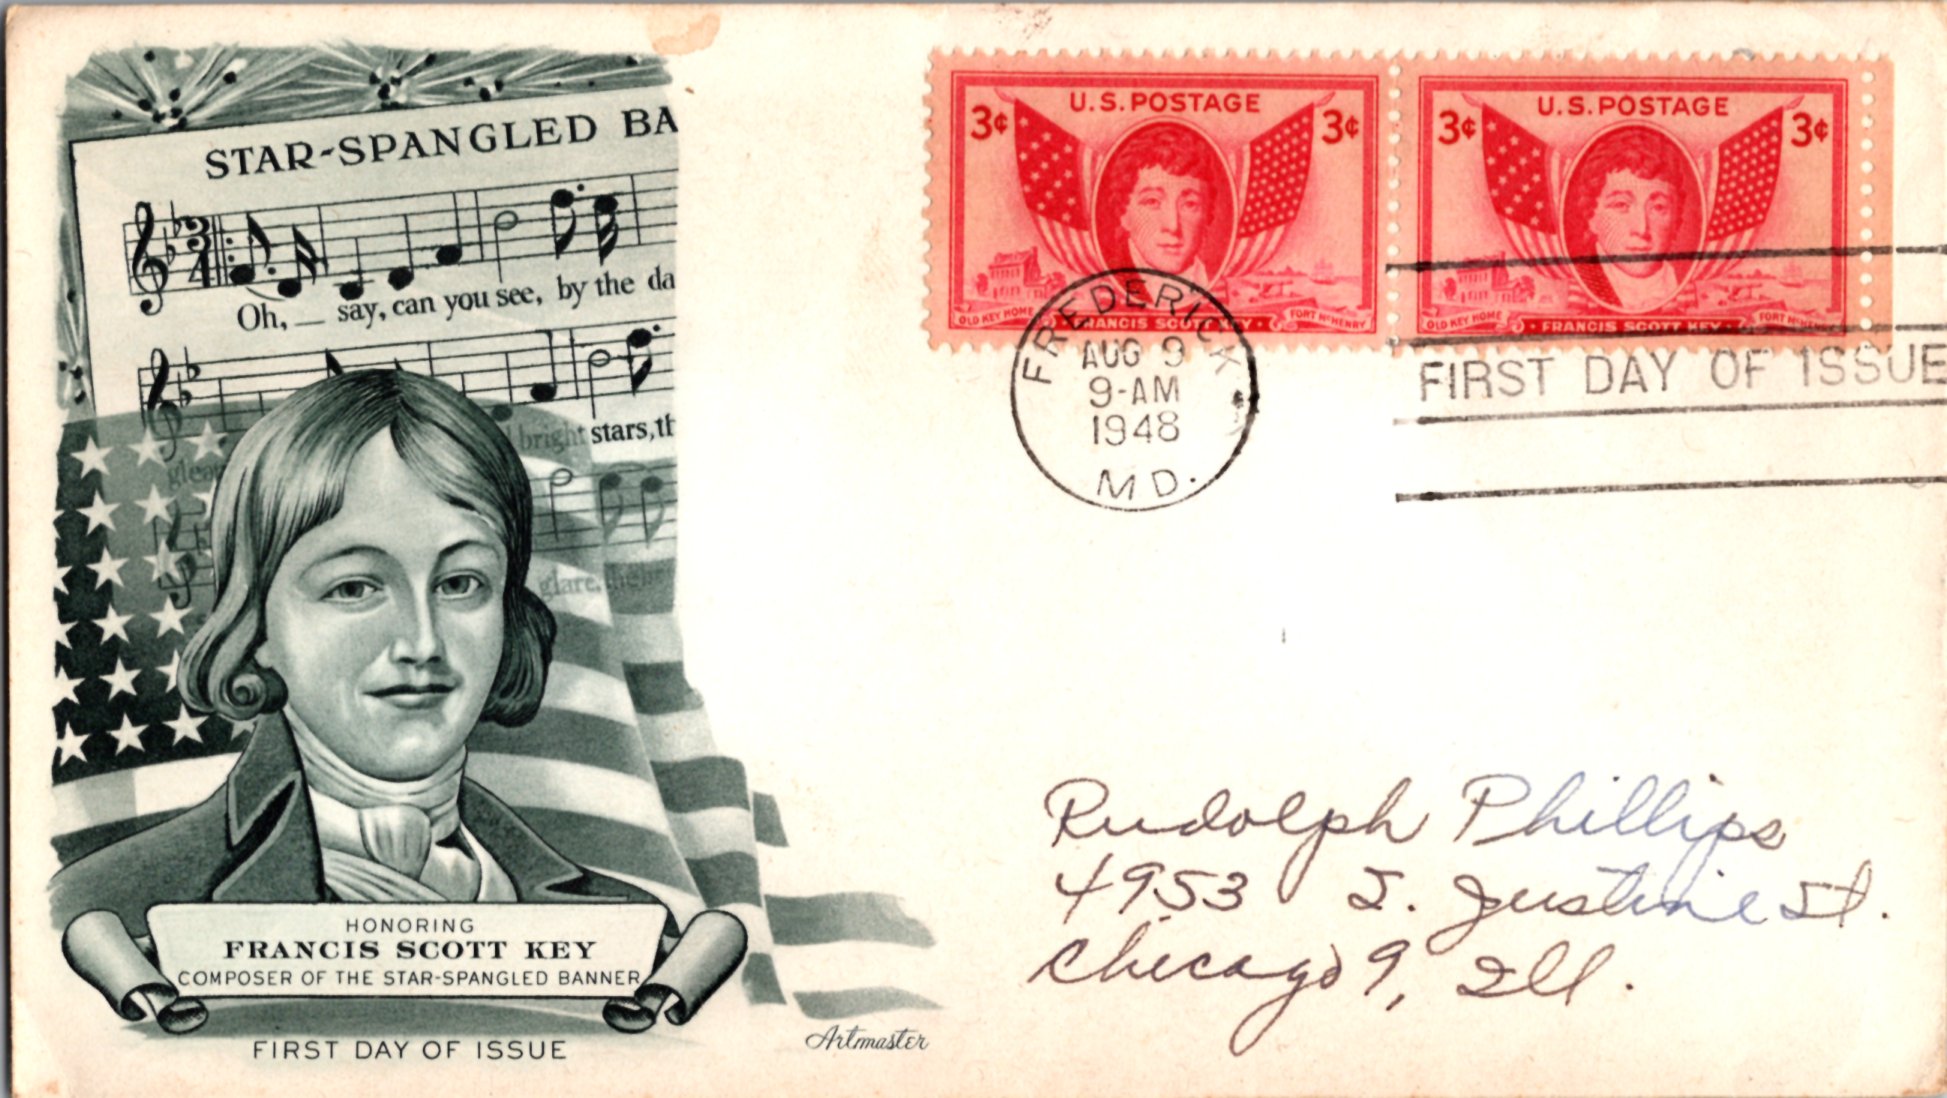 STAR-SPANGLED BA
3
4
Oh, _ say, can you see, by the da
bright stars, th
glare, the
HONORING
FRANCIS SCOTT KEY
COMPOSER OF THE STAR-SPANGLED BANNER
FIRST DAY OF ISSUE
Artmaster
U.S. POSTAGE
3¢ 3¢
OLD KEY HOME
FRANCIS SCOTT KEY
FORT McHENRY
U.S. POSTAGE
3¢ 3¢
OLD KEY HOME
FRANCIS SCOTT KEY
FORT McHENRY
FREDERICK
AUG 9
9-AM
1948
MD.
FIRST DAY OF ISSUE
Rudolph Phillips
4953 S. Justine St.
Chicago 9, Ill.